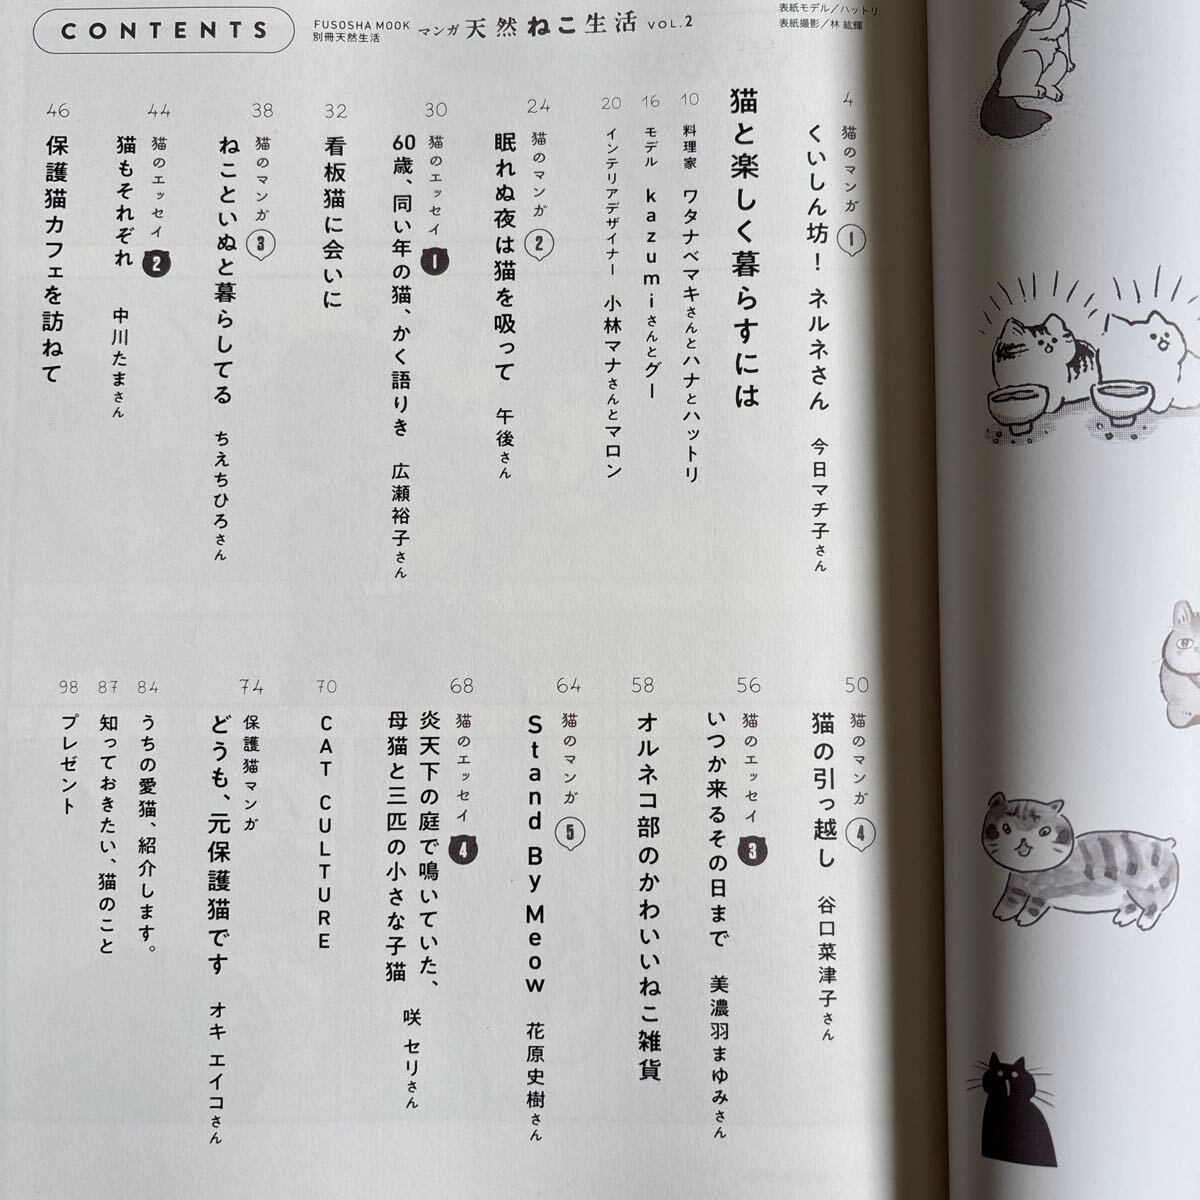 CONTENTS
FUSOSHA MOOK
別冊天然生活
マンガ 天然ねこ生活 VOL.2
表紙モデル/ハットリ
表紙撮影/林 紘輝
4
猫のマンガ 1
くいしん坊! ネルネさん 今日マチ子さん
猫と楽しく暮らすには
10
料理家 ワタナベマキさんとハナとハットリ
16
モデル kazumiさんとグー
20
インテリアデザイナー 小林マナさんとマロン
24
猫のマンガ 2
眠れぬ夜は猫を吸って 午後さん
30
猫のエッセイ 1
60歳、同い年の猫、かく語りき 広瀬裕子さん
32
看板猫に会いに
38
猫のマンガ 3
ねこといぬと暮らしてる ちえちひろさん
44
猫のエッセイ 2
猫もそれぞれ 中川たまさん
46
保護猫カフェを訪ねて
50
猫のマンガ 4
猫の引っ越し 谷口菜津子さん
56
猫のエッセイ 3
いつか来るその日まで 美濃羽まゆみさん
58
オルネコ部のかわいいねこ雑貨
64
猫のマンガ 5
Stand By Meow 花原史樹さん
68
猫のエッセイ 4
炎天下の庭で鳴いていた、
母猫と三匹の小さな子猫 咲 セリさん
70
CAT CULTURE
74
保護猫マンガ
どうも、元保護猫です オキ エイコさん
84
うちの愛猫、紹介します。
87
知っておきたい、猫のこと
98
プレゼント